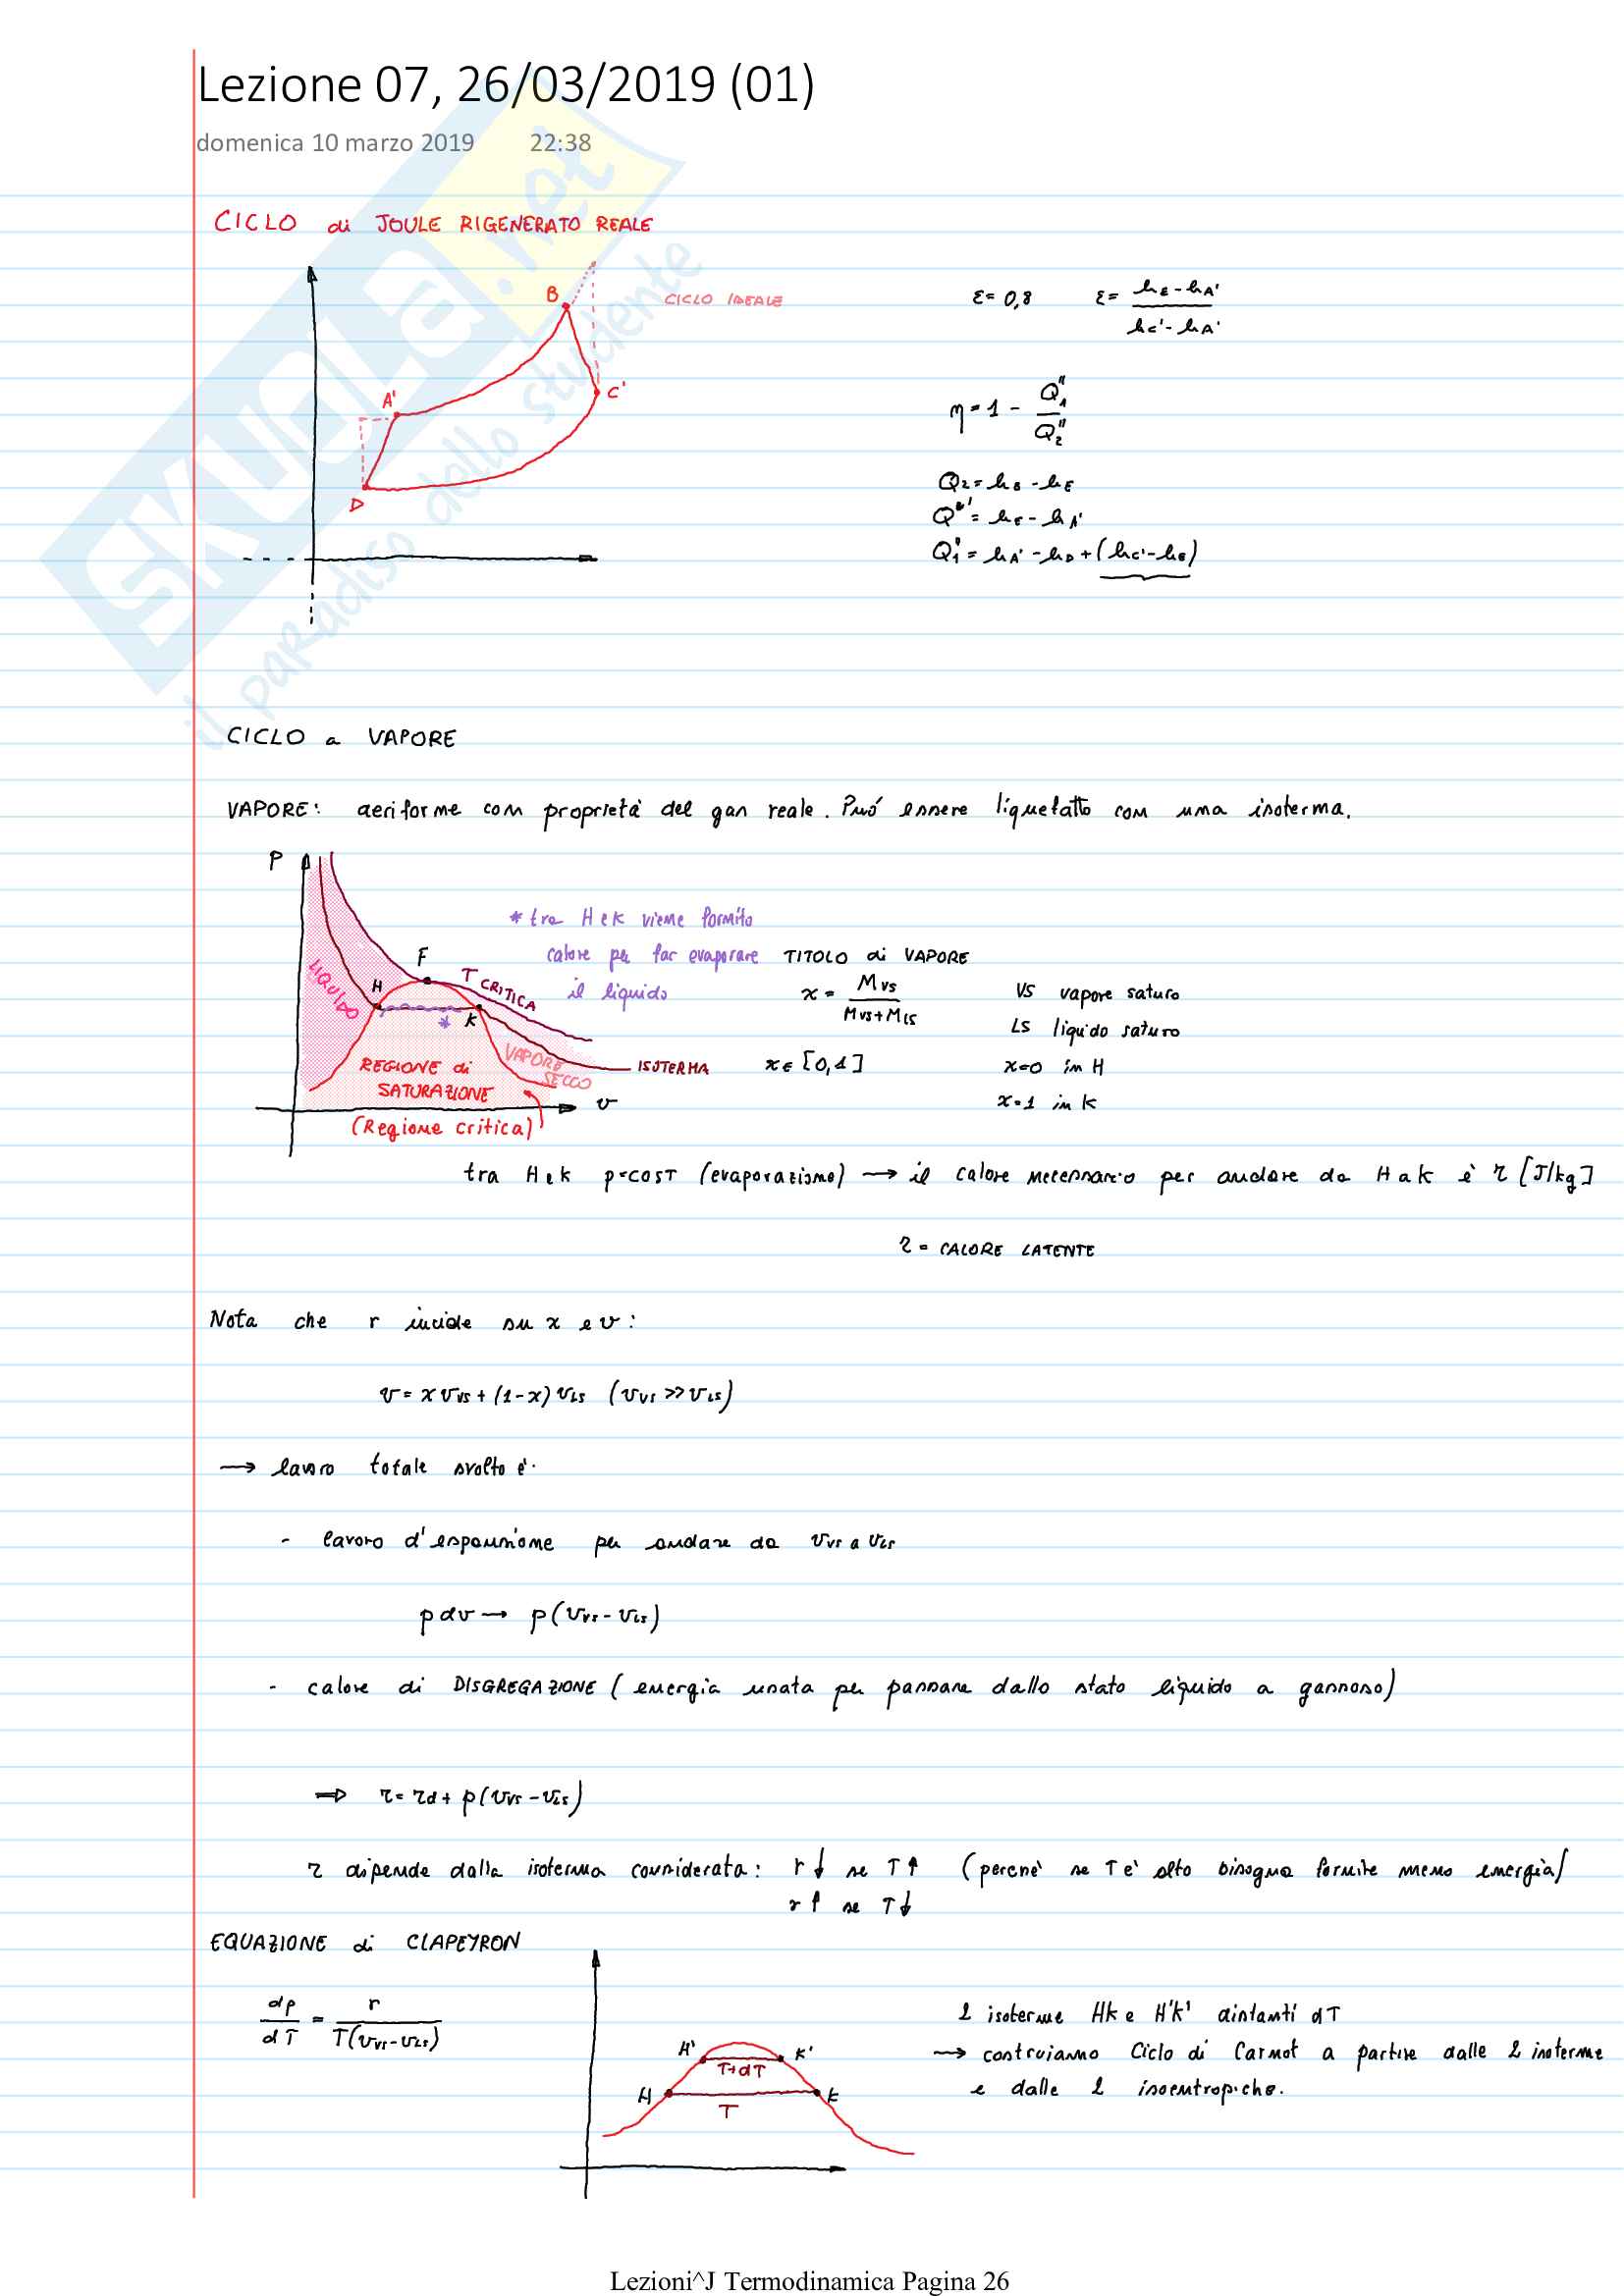 Lezione 07, 26/03/2019 (01)
domenica 10 marzo 2019 22:38
SKUOLA.net
il paradiso dello studente
CICLO di JOULE RIGENERATO REALE
B
CICLO IDEALE
A'
C'
D
ε = 0,8 ε = (hE - hA') / (hC' - hA')
η = 1 - Q1'' / Q2''
Q2 = hB - hE
= hE - hA'
= hA' - hD + (hC' - hE)
CICLO a VAPORE
VAPORE: aeriforme con proprietà del gas reale. Può essere liquefatto con una isoterma.
P
* tra H e K viene fornito
calore per far evaporare
il liquido
F
H
K
*
T CRITICA
LIQUIDO
ISOTERMA
VAPORE
SECCO
REGIONE di
SATURAZIONE
(Regione critica)
v
TITOLO di VAPORE
x = Mvs / (Mvs + MLs)
x ∈ [0,1]
VS vapore saturo
LS liquido saturo
x=0 in H
x=1 in K
tra H e K p=cost (evaporazione) → il calore necessario per andare da H a K è r [J/kg]
r = CALORE LATENTE
Nota che r incide su x e v:
v = x vvs + (1-x) vLs (vvs >> vLs)
→ lavoro totale svolto è:
- lavoro d'espansione per andare da vvs a vLs
pdv → p(vvs - vLs)
- calore di DISGREGAZIONE (energia usata per passare dallo stato liquido a gassoso)
⇒ r = rd + p(vvs - vLs)
r dipende dalla isoterma considerata: r↓ se T↑ (perchè se T è alto bisogna fornire meno energia)
r↑ se T↓
EQUAZIONE di CLAPEYRON
dp/dT = r / T(vvs - vLs)
H'
K'
T+dT
H
K
T
2 isoterme HK e H'K' distanti dT
→ costruiamo Ciclo di Carnot a partire dalle 2 isoterme
e dalle 2 isoentropiche.
Lezioni^J Termodinamica Pagina 26